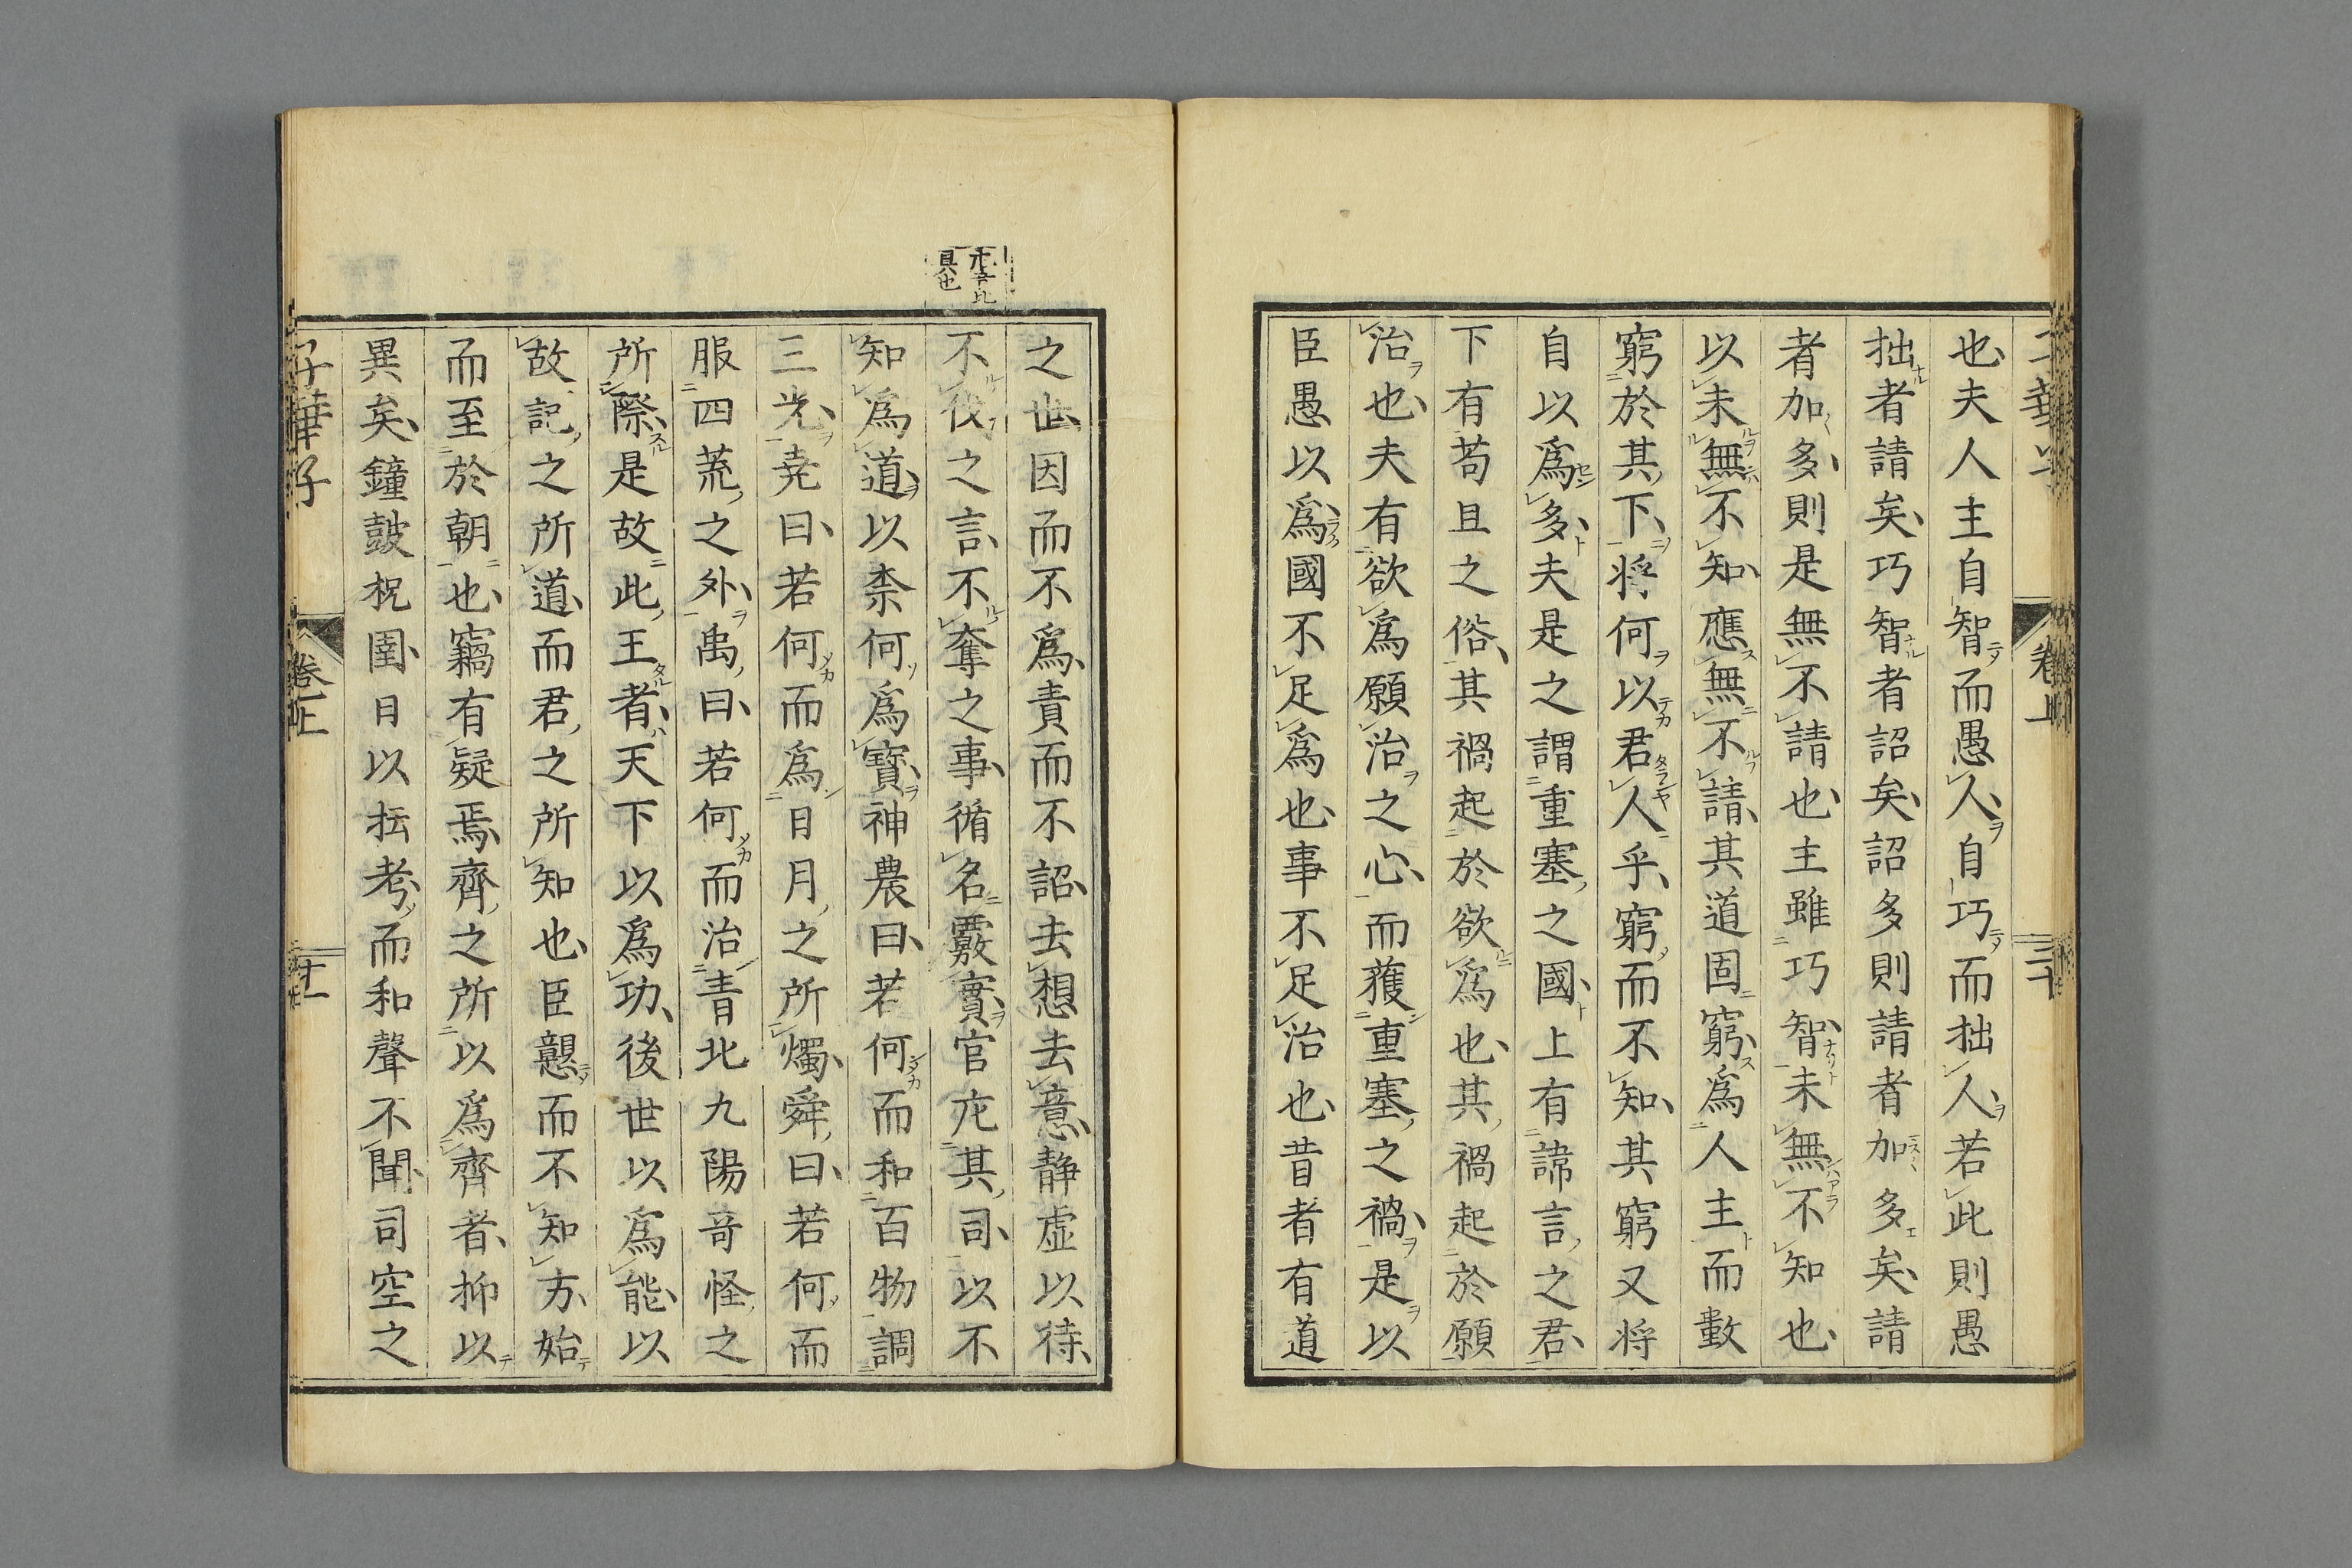 也夫人主自智而愚人自巧而拙人若此則愚
拙者請矣巧智者詔矣詔多則請者加多矣請
者加多則是無不請也主雖巧智未無不知也
以未無不知應無不請其道固窮爲人主而數
窮於其下将何以君人乎窮而不知其窮又将
自以爲多夫是之謂重塞之國上有諱言之君
下有苟且之俗其禍起於欲爲也其禍起於願
治也夫有欲爲願治之心而獲重塞之禍是以
臣愚以爲國不足爲也事不足治也昔者有道
之世因而不爲責而不詔去想去意静虚以待
不伐之言不奪之事循名覈實官庀其司以不
知爲道以柰何爲寳神農曰若何而和百物調
三光尭曰若何而爲日月之所燭舜曰若何而
服四荒之外禹曰若何而治青北九陽竒怪之
所際是故此王者天下以爲功後世以爲能以
故記之所道而君之所知也臣戇而不知方始
而至於朝也竊有疑焉齊之所以爲齊者抑以
異矣鐘皷柷圉日以抎考而和聲不聞司空之
子華子
卷上
十一